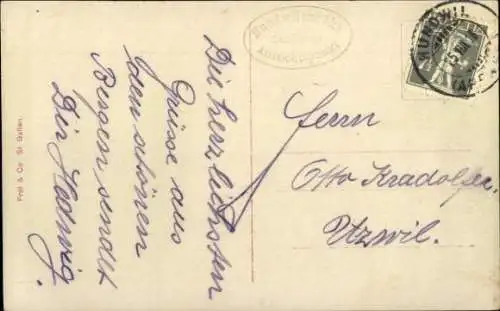 Die herzlichsten
Grüsse aus
den schönen
Bergen sendet
Dir Hedwig.
Herrn
Otto Kradolfer
Utzwil.
Frei & Co St. Gallen.